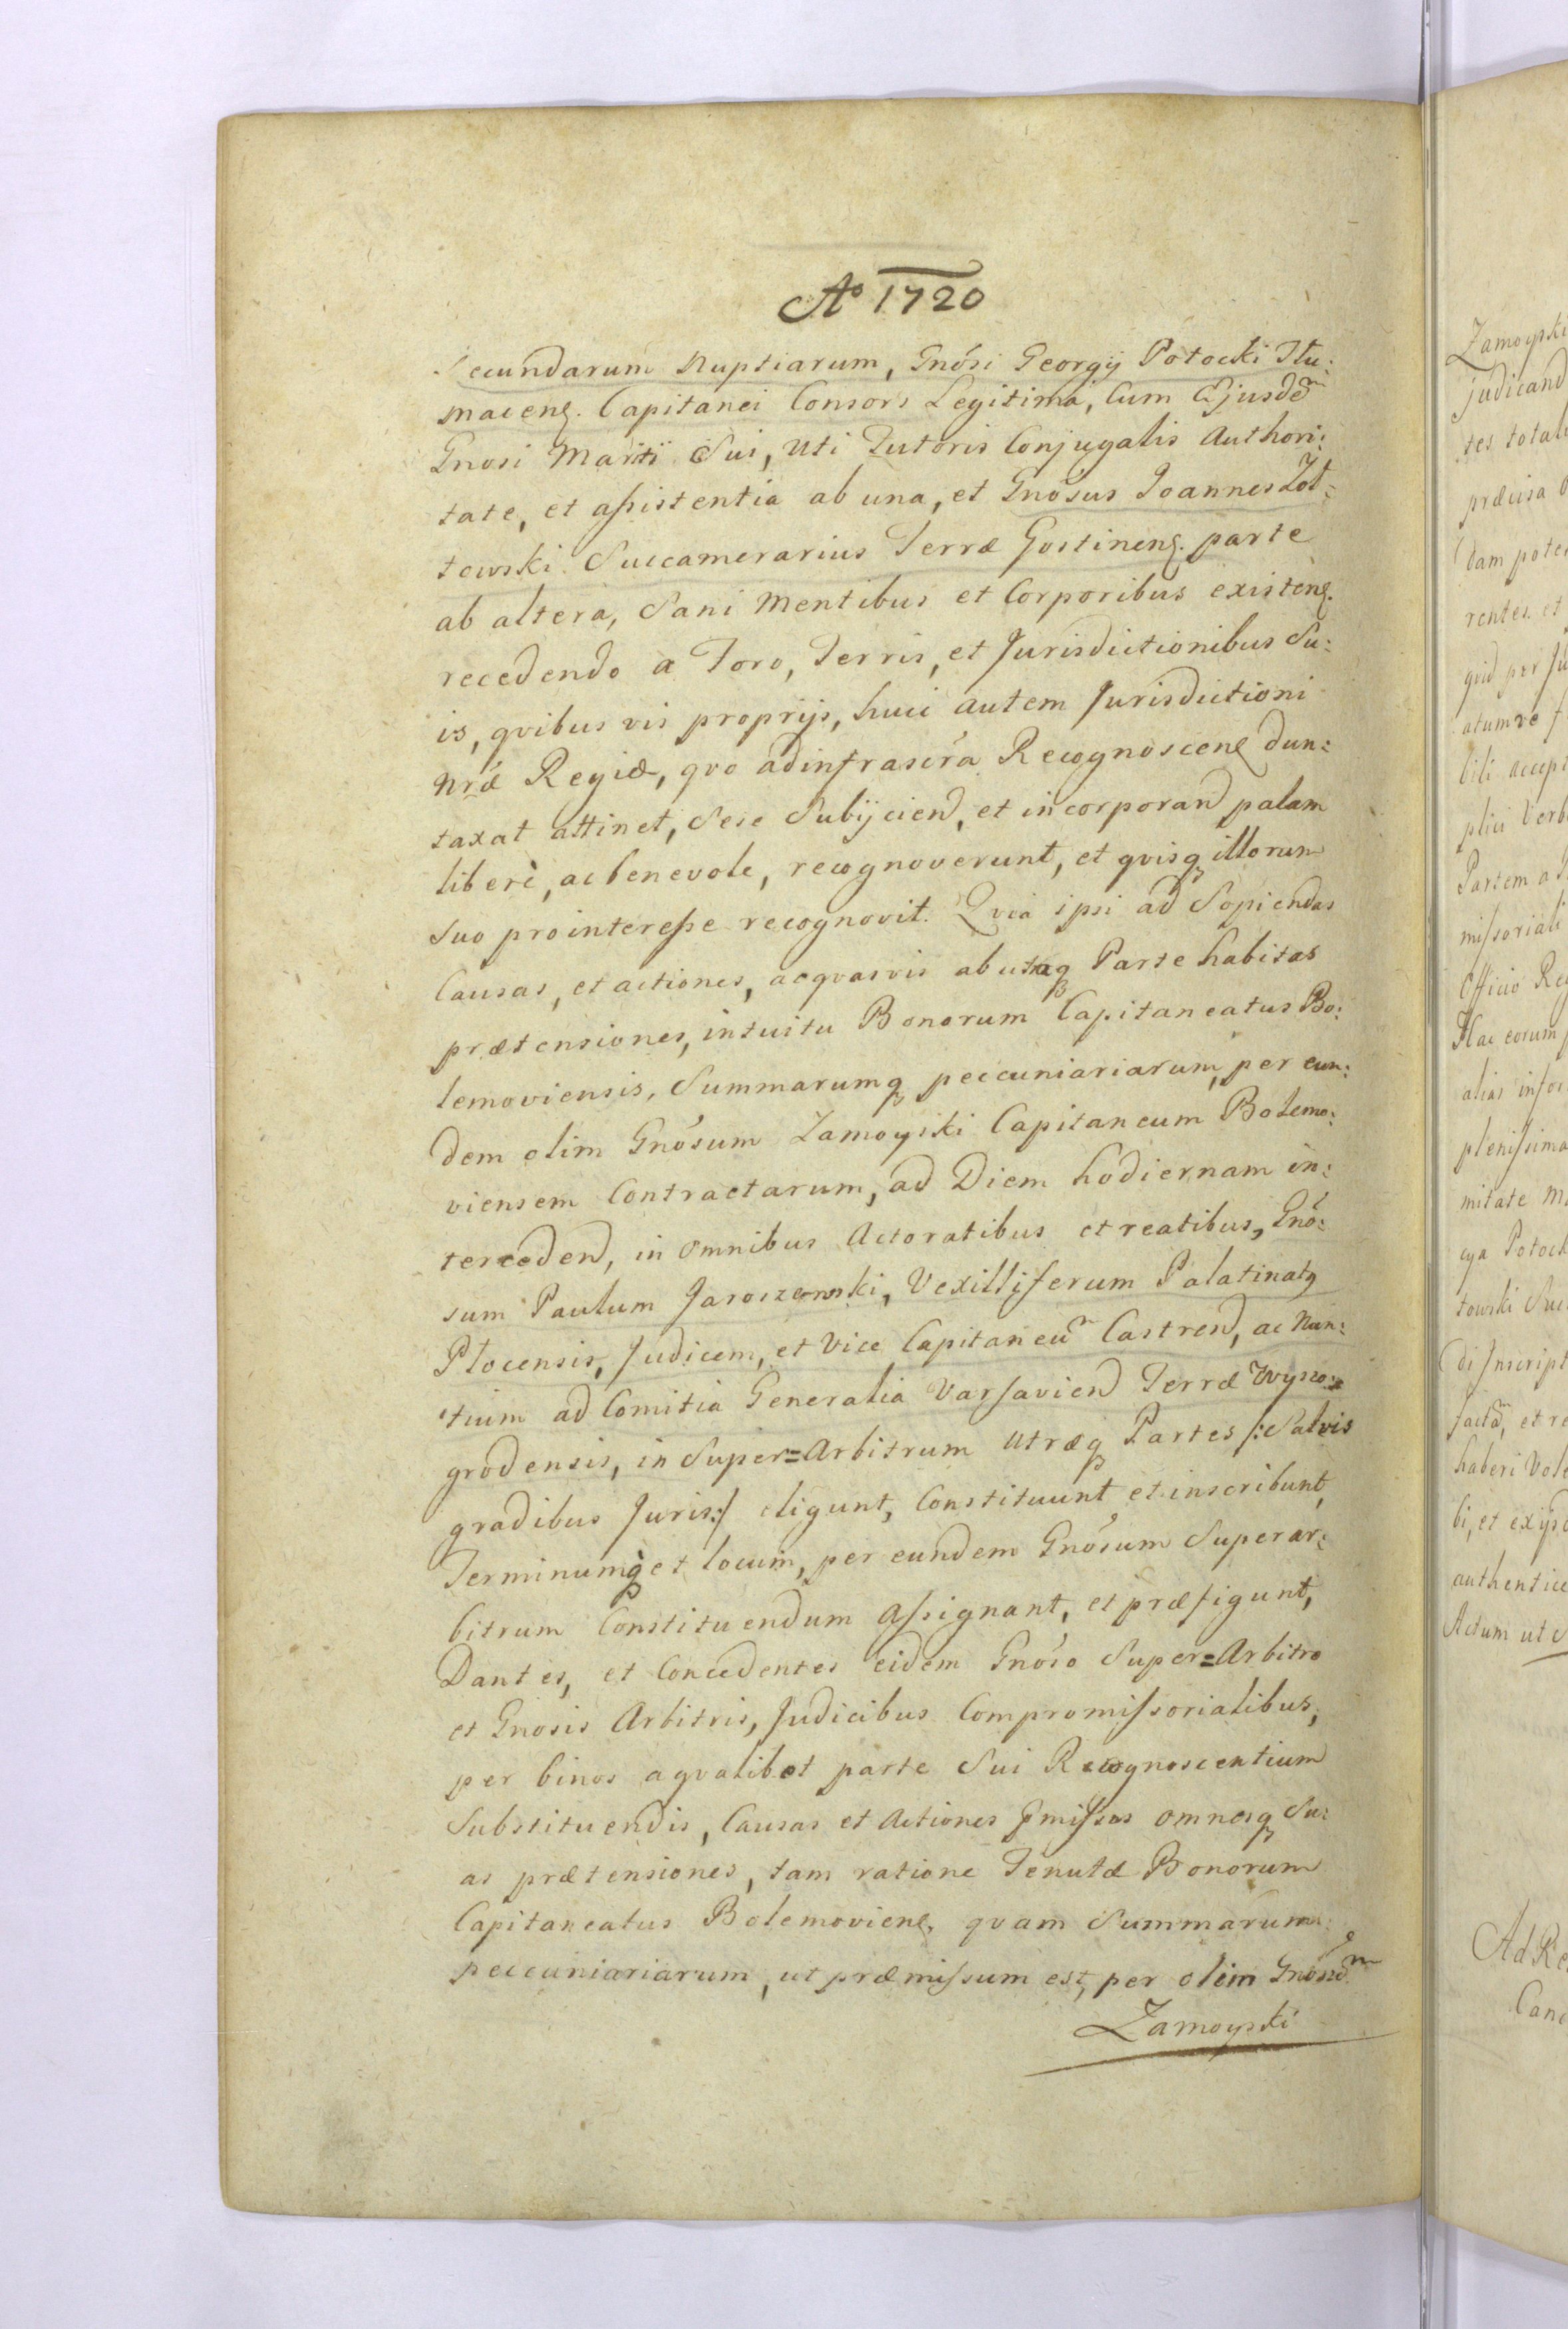 Aº 1720
Secundarum Nuptiarum, Gnósi Georgij Potocki Tłu:
macenſ. Capitanei Consors Legitima, Cum Ejusdem
Gnosi Mariti Sui, uti Tutoris Conjugalis Authori:
tate, et aſsistentia ab una, et Gnósus Joannes Zół:
towski Succamerarius Terræ Gostinenſ. parte
ab altera, Sani Mentibus et Corporibus existenſ.
recedendo a Foro, Terris, et Jurisdictionibus Su:
is, qvibus vis proprijs, huic autem Jurisdictioni
Nrǽ Regiæ, qvo ad infrascr̃a Recognoscenſ dun:
taxat attinet, Sese Subijciend, et incorporand palam
liberè, ac benevole, recognoverunt, et qvisq illorum
Suo pro intereſse recognovit. Qvia ipsi ad Sopiendas
Causas, et actiones, ac qvasvis ab utraq Parte habitas
prætensiones, intuitu Bonorum Capitaneatus Bo:
lemoviensis, Summarumq peccuniariarum, per eun:
dem olim Gnósum Zamoyski Capitaneum Bolemo:
viensem Contractarum, ad Diem hodiernam in:
terceden̄d, in omnibus Actoratibus et reatibus, Gnó:
sum Paulum Jaroszewski, Vexilliferum Palatinatq
Plocensis, Judicem, et Vice Capitaneum Castrend, ac Nun:
tium ad Comitia Generalia Varsaviend Terræ Wyszo:
grodensis, in Super=Arbitrum utræq Partes /:Salvis
gradibus Juris:/ eligunt, Constituunt et inscribunt,
Terminumq et locum, per eundem Gnósum Superar:
bitrum Constituendum aſsignant, et præfigunt,
Dantes, et Concedentes eidem Gnóso Super=Arbitro
et Gnosis Arbitris, Judicibus Compromiſsorialibus,
per binos a qvalibet parte Sui Recognoscentium
Substituendis, Causas et Actiones p̃miſsas omnesq Su:
as prætensiones, tam ratione Tenutæ Bonorum
Capitaneatus Bolemovienſ, qvam Summarum
peccuniariarum, ut præmiſsum est, per olim Gnósum
Zamoyski